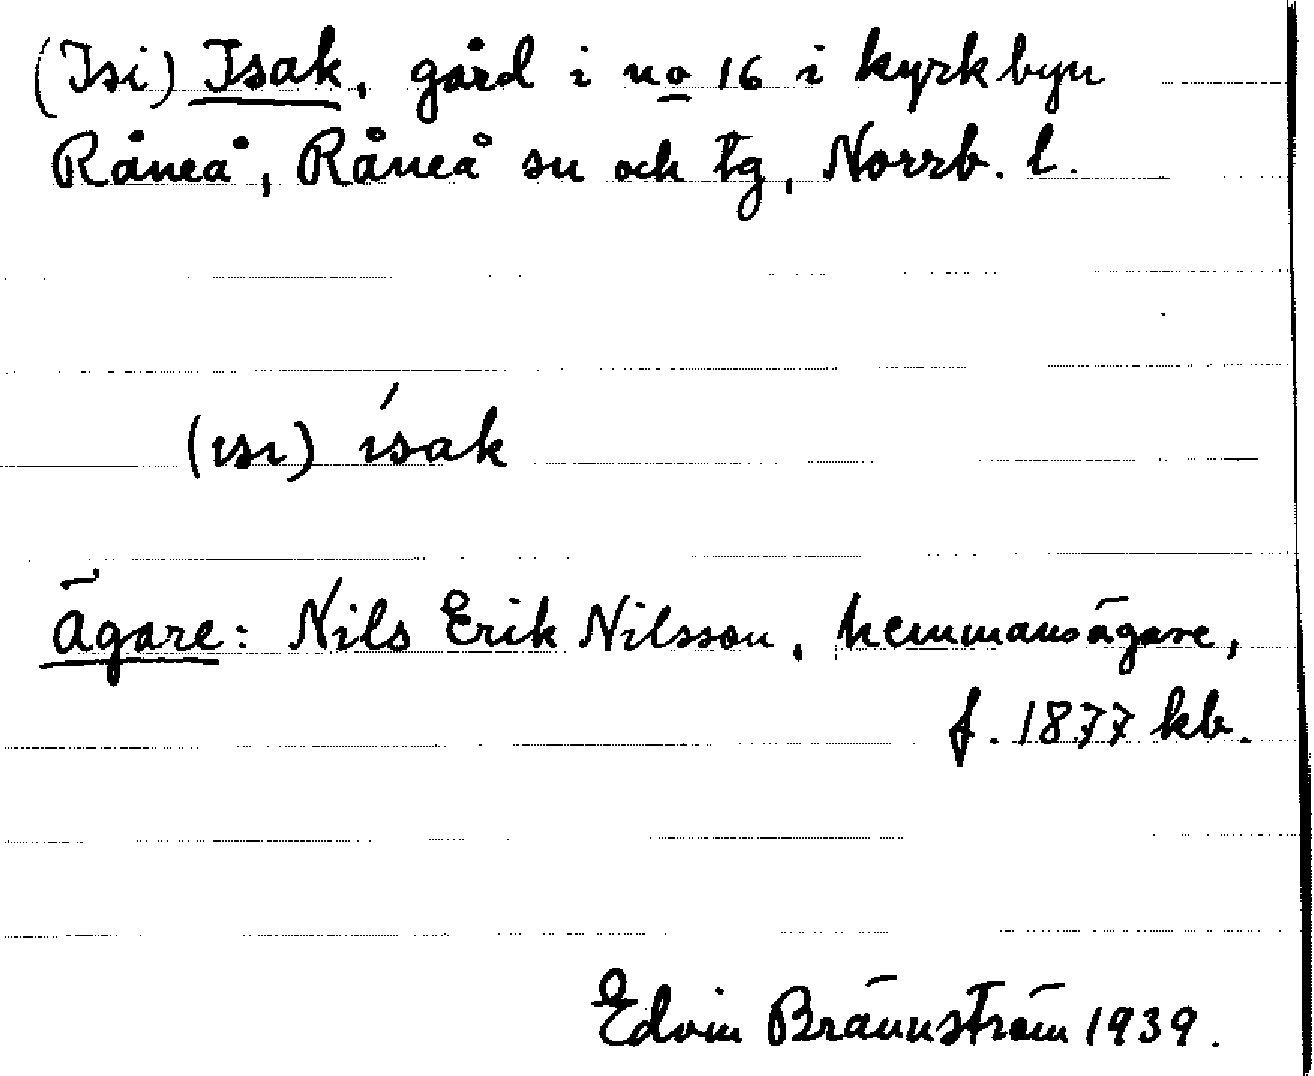 (Isi) Isak, gård i no 16 i kyrkbyn
Råneå, Råneå sn och tg, Norrb. l.
(ısı) ísak
Ägare: Nils Erik Nilsson, hemmansägare,
f. 1877 kb.
Edvin Brännström 1939.